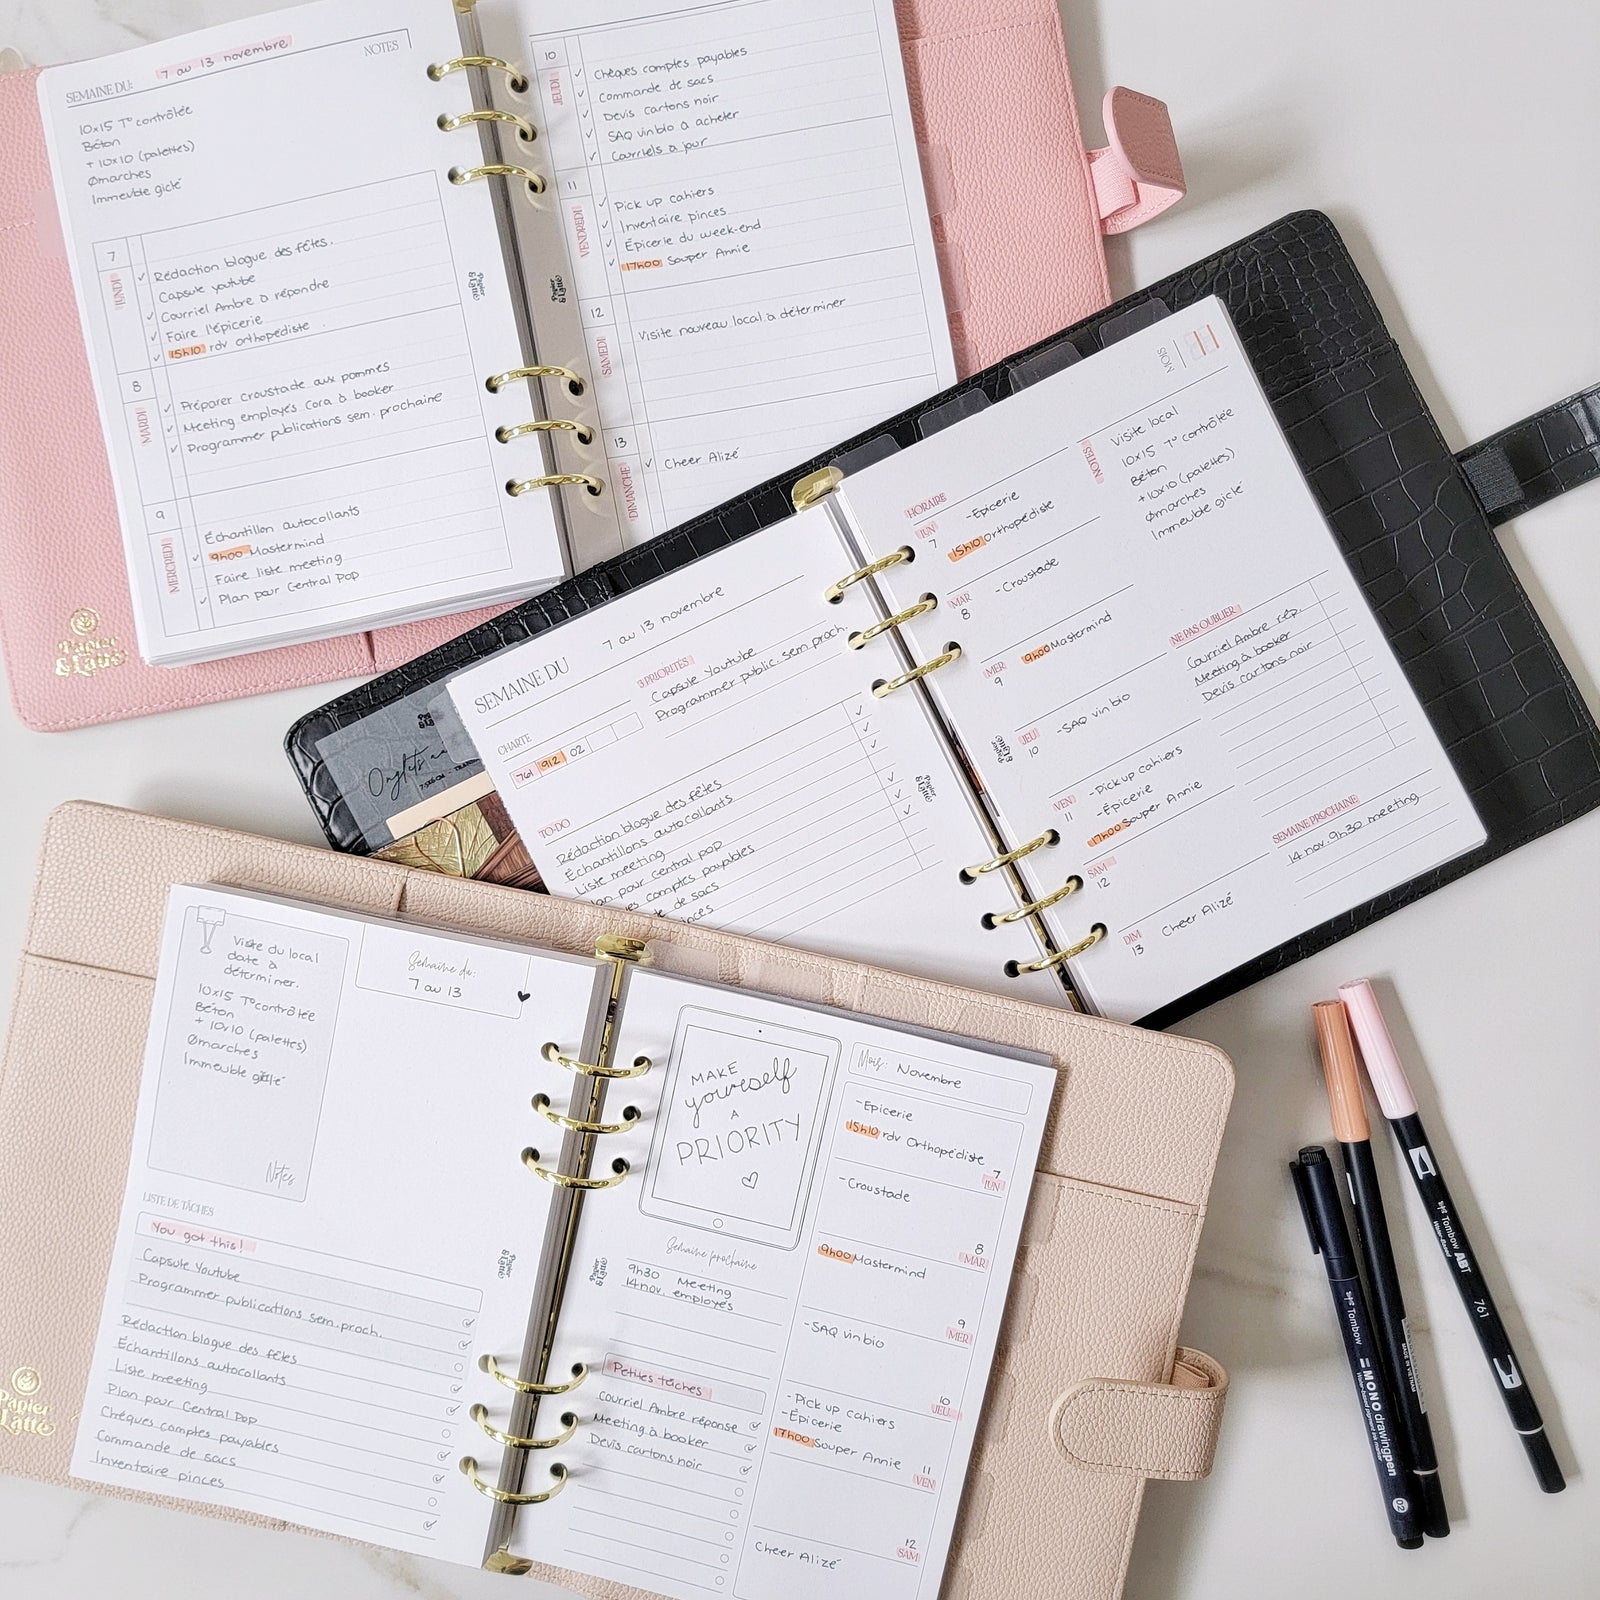 SEMAINE DU: 7 au 13 novembre
NOTES
10x15 T° contrôlée
Béton
+ 10x10 (palettes)
Ømarches
Immeuble giclé
7
LUNDI
Rédaction blogue des fêtes.
Capsule youtube
Courriel Ambre à répondre
Faire l'épicerie
15h10 rdv orthopédiste.
8
MARDI
Préparer croustade aux pommes
Meeting employés Cora à booker
Programmer publications sem. prochaine
9
MERCREDI
Échantillon autocollants
9h00 Mastermind
Faire liste meeting
Plan pour Central Pop
Papier & Latté
Papier & Latté
10
JEUDI
Chèques comptes payables
Commande de sacs
Devis cartons noir
SAQ vin bio à acheter
Courriels à jour
11
VENDREDI
Pick up cahiers
Inventaire pinces
Épicerie du week-end
17h00 Souper Annie
12
SAMEDI
Visite nouveau local à déterminer
13
DIMANCHE
Cheer Alizé
Papier & Latté
SEMAINE DU
7 au 13 novembre
3 PRIORITÉS
Capsule Youtube
Programmer public. sem. proch.
CHARTE
761 912 02
TO-DO
Rédaction blogue des fêtes
Échantillons autocollants
Liste meeting
Plan pour Central pop
comptes payables
de sacs
Papier & Latté
Onglets
MOIS
11
HORAIRE
LUN
7
-Epicerie
15h10 Orthopédiste
MAR
8
-Croustade
MER
9
9h00 Mastermind
JEU
10
-SAQ vin bio
VEN
11
-Pick up cahiers
-Épicerie
17h00 Souper Annie
SAM
12
DIM
13
Cheer Alizé
Papier & Latté
NOTES
Visite local
10x15 T° contrôlée
Béton
+10x10 (palettes)
Ømarches
Immeuble giclé
NE PAS OUBLIER
Courriel Ambre rép.
Meeting à booker
Devis cartons noir
SEMAINE PROCHAINE
14 nov. 9h30 meeting
Visite du local
date à
déterminer.
10x15 T° contrôlée
Béton
+ 10x10 (palettes)
Ømarches
Immeuble giclé
Notes
Semaine du:
7 au 13
LISTE DE TÂCHES
You got this!
Capsule Youtube
Programmer publications sem. proch.
Rédaction blogue des fêtes
Échantillons autocollants
Liste meeting
Plan pour Central Pop
Chèques comptes payables
Commande de sacs
Inventaire pinces
Papier & Latté
Papier & Latté
MAKE
yourself
A
PRIORITY
Semaine prochaine
9h30 Meeting
14 nov. employés
Petites tâches
Courriel Ambre réponse
Meeting à booker
Devis cartons noir
Papier & Latté
Mois: Novembre
-Epicerie
15h10 rdv Orthopédiste
7
LUN
-Croustade
8
MAR
9h00 Mastermind
9
MER
-SAQ vin bio
10
JEU
-Pick up cahiers
-Épicerie
17h00 Souper Annie
11
VEN
12
SAM
Cheer Alizé
Tombow MONO drawing pen 02
Tombow ABT
761